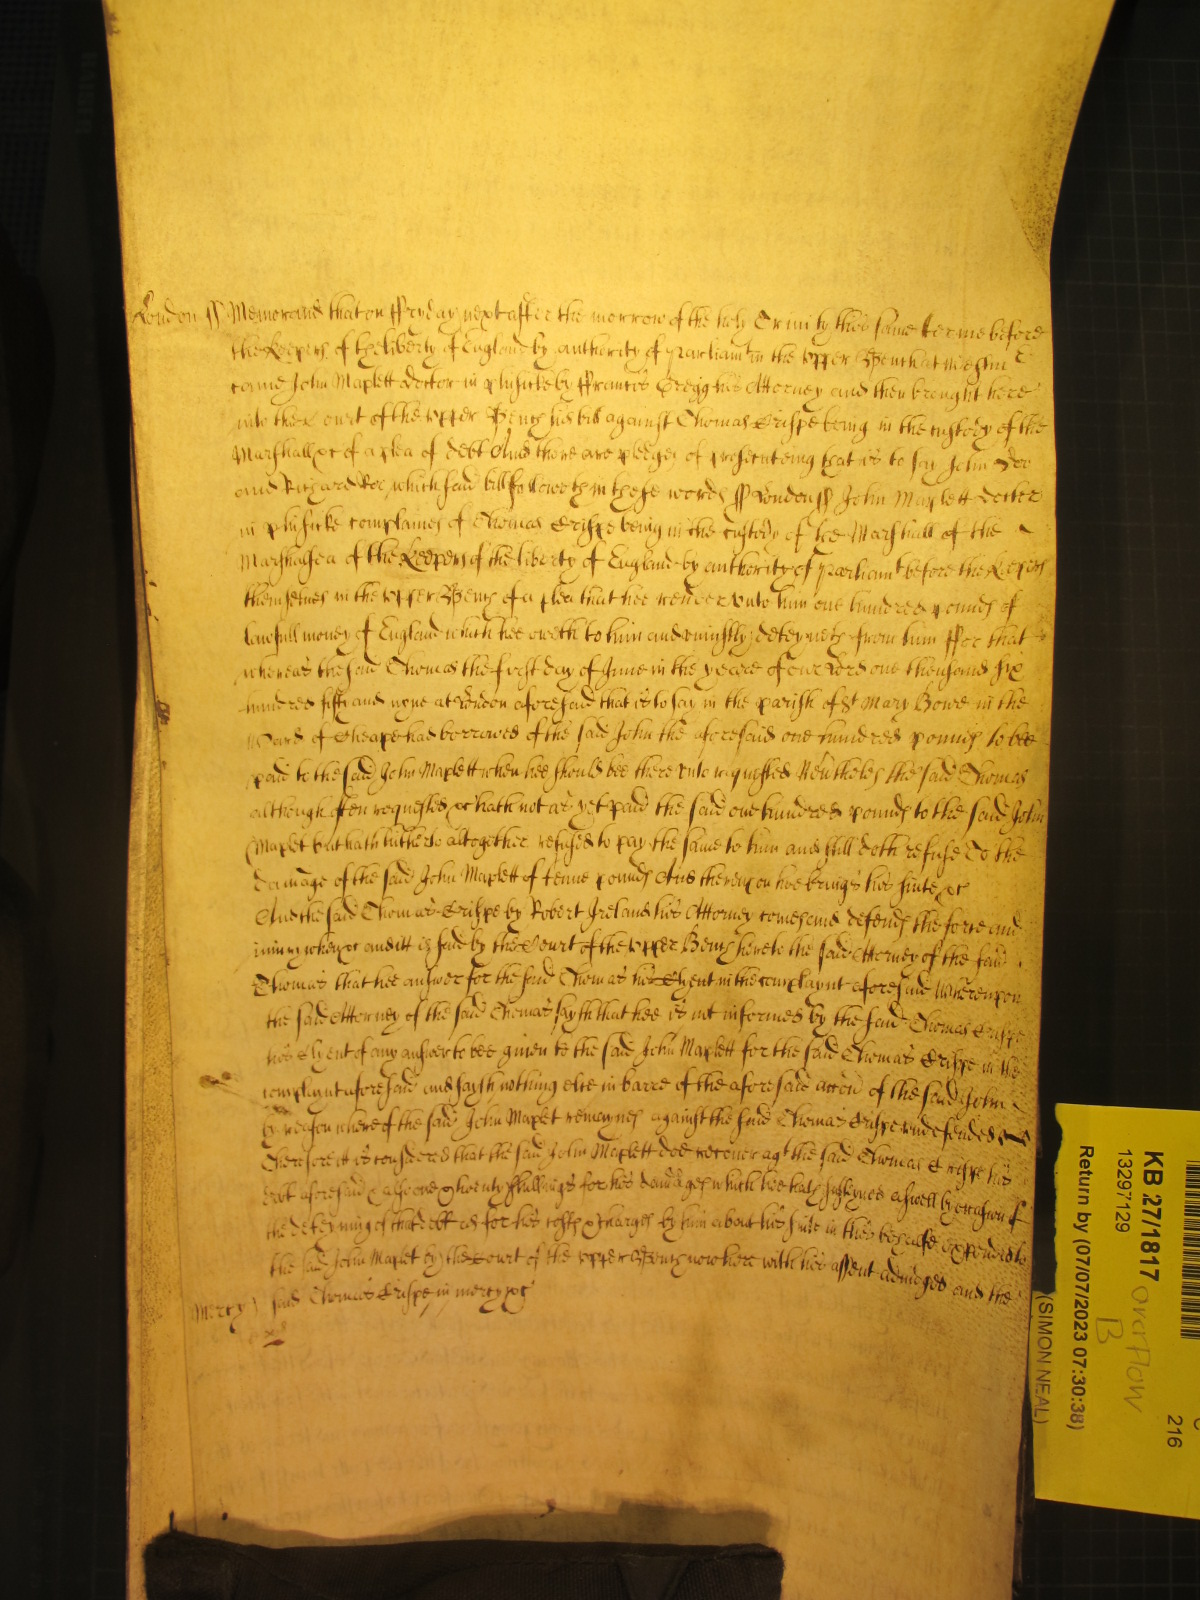 London ss Memorand that on ffryday next after the morrow of the holy Trinity this same terme before
the Keepers of the liberty of England by authority of Parliamt in the upper Bench at Westm
came John Maplett doctor in Phisicke by ffrancis Gregg his Attorney and then brought here
into the Court of the upper Bench his bill against Thomas Crispe being in the custody of the
Marshall &c of a plea of debt And there are pledges of prosecuteing that is to say John Doo
and Richard Roo which said bill followeth in these words ss London ss John Maplett doctor
in phisicke complaines of Thomas Crispe being in the custody of the Marshall of the
Marshalsea of the Keepers of the liberty of England by authority of Parliamt before the Keepers
themselves in the upper Bench of a plea that hee render unto him one hundred pounds of
lawfull money of England which hee oweth to him and uniustly deteyneth from him ffor that
whereas the said Thomas the first day of June in the yeare of our Lord one thousand six
hundred fifti and nyne at London aforesaid that is to say in the parish of St Mary Bowe in the
Ward of Cheape had borrowed of the said John the aforesaid one hundred pounds to bee
paid to the said John Maplett when hee should bee there unto requested Neutheles the said Thomas
although often requested &c hath not as yet paid the said one hundred pounds to the said John
Maplet but hath hitherto altogether refused to pay the same to him and still doth refuse To the
damage of the said John Maplett of tenne pounds And thereupon hee brings his suite &c
And the said Thomas Crispe by Robert Ireland his Attorney comes and defends the force and
iniury when &c and itt is said by the Court of the upper Bench here to the said Attorney of the said
Thomas that hee answer for the said Thomas his Clyent in the complaynt aforesaid Whereupon
the said Attorney of the said Thomas sayth that hee is not informed by the said Thomas Crispe
his Clyent of any answer to bee given to the said John Maplett for the said Thomas Crispe in the
complaynt aforesaid and sayth nothing else in barre of the aforesaid accon of the said John
by reason whereof the said John Maplet remaynes against the said Thomas Crispe undefended
Therefore itt is considered that the said John Maplett doe recover agt the said Thomas Crispe his
debt aforesaid & alsoe one & twenty shillings for his damages which hee hath susteyned aswell by occasion of
the deteyning of that debt as for his costs & charges by him about his suite in this behalfe expended to
the said John Maplet by the Court of the upper Bench now here with his assent adiudged and the
Mercy said Thomas Crispe in mercy &c
KB 27/1817 overflow
B
13297129
Return by (07/07/2023 07:30:38)
(SIMON NEAL)
216